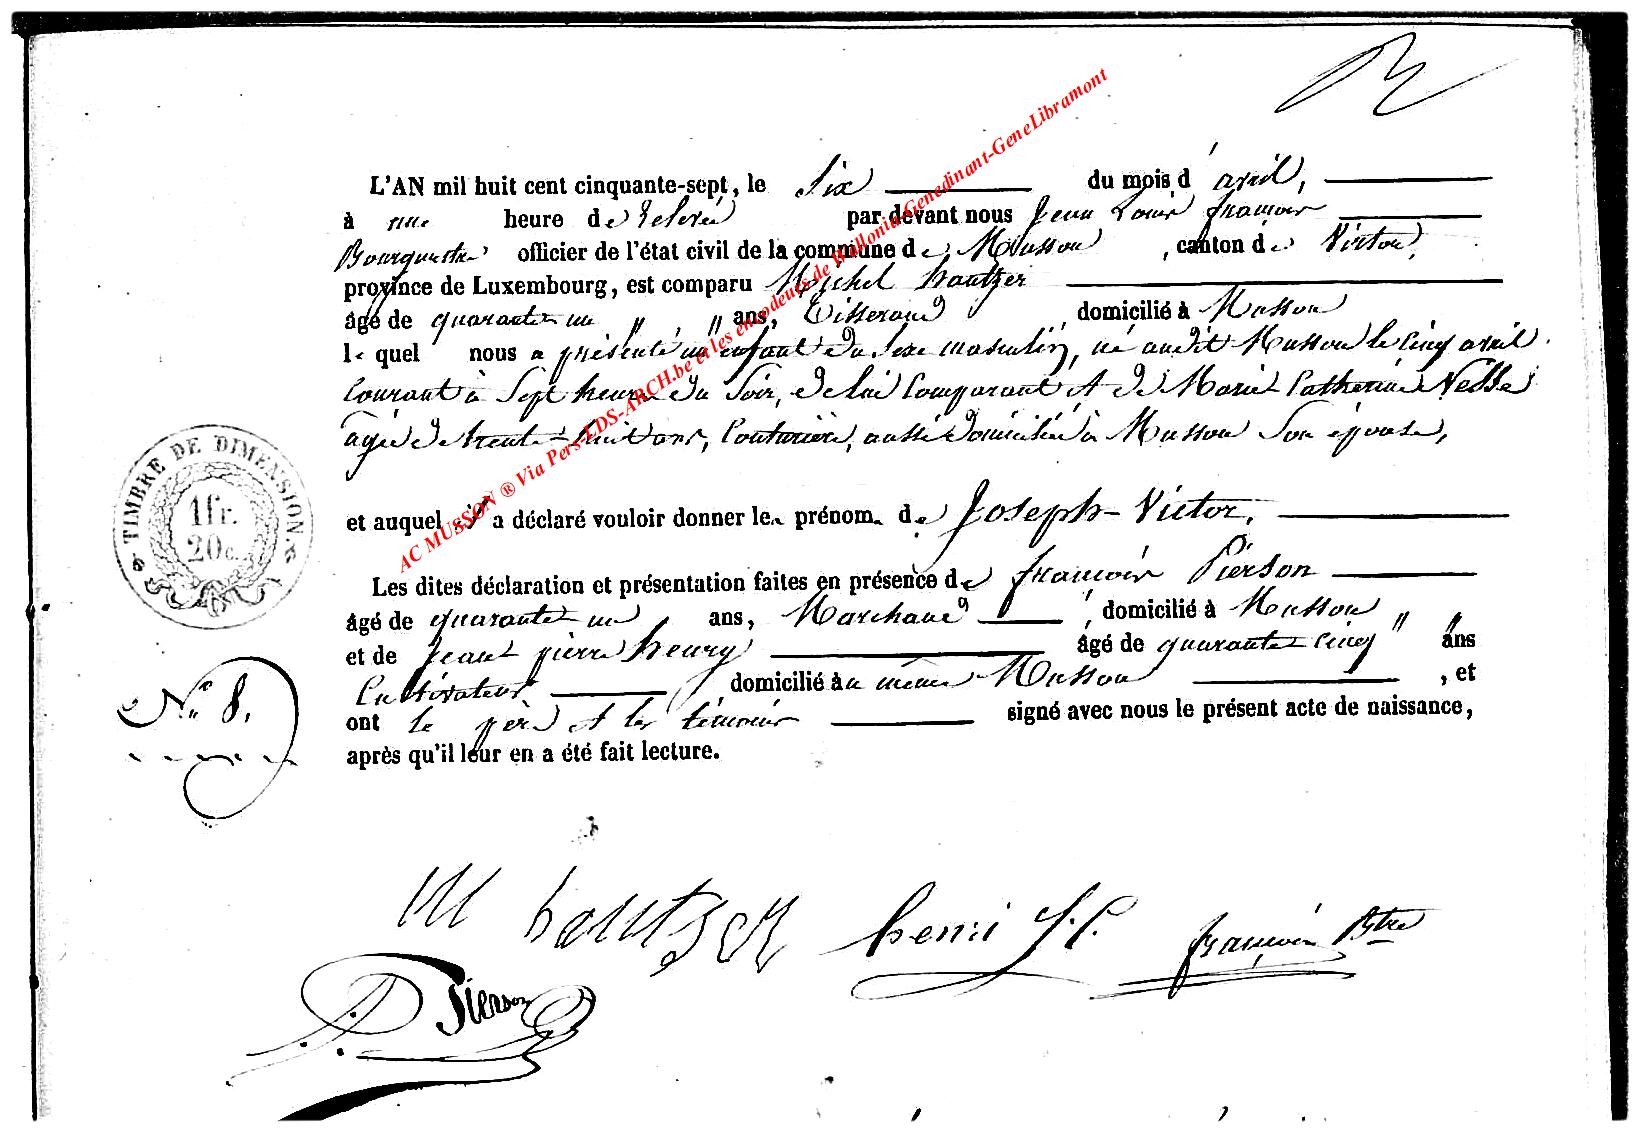 L'AN mil huit cent cinquante-sept, le Six du mois d'avril,
à une heure de relevée par devant nous Jean Louis françois
officier de l'état civil de la commune de Musson, canton de Virton,
province de Luxembourg, est comparu Michel hautzer
âgé de quarante un " " ans, Tisserand domicilié à Musson
lequel nous a présenté un enfant du Sexe masculin, né audit Musson le cinq avril
courant à Sept heures du Soir, de lui comparant et de Marie Catherine
agée de trente-huit ans, Couturière, aussi domiciliée à Musson Son épouse,
et auquel a déclaré vouloir donner les prénoms de Joseph-Victor,
Les dites déclaration et présentation faites en présence de françois Pierson
âgé de quarante un ans, Marchand, domicilié à Musson " "
et de jean pierre henry âgé de quarante cinq ans
Cultivateur, domicilié au même Musson, et
ont le père et les témoins signé avec nous le présent acte de naissance,
après qu'il leur en a été fait lecture.
TIMBRE DE DIMENSION.
1fr.
20c.
N° 8.
M hautzer henri J.P. françois Btre
Pierson
AC MUSSON ® Via Pers-LDS-ARCH.be et les encodeurs de Wallonia-Genedinant-GeneLibramont